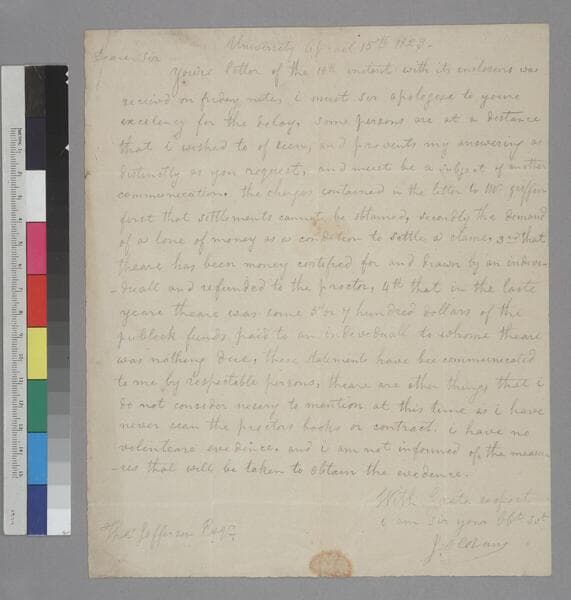 University April 15th 1823-
Dear Sir
Youre letter of the 10th instent with its enclosiers was
receivd on friday nite, i must sir apologese to youre
excelency for the delay. some persons are at a distance
that i wished to of seen, and prevents my answering as
distinctly as you request, and must be a subject of another
communication. the charges contained in the letter to Mr griffin
first that settlements cannot be obtained, secondly the demand
of a lone of money as a condition to settle a clame. 3rd that
theare has been money certified for and drawn by an indeve-
-duall and refunded to the proctor, 4th that in the laste
yeare theare was some 5 or 7 hundred dollars of the
publick funds paid to an individuall to whome theare
was nothing due, these statements have bee communecated
to me by respectable persons, theare are other things that i
do not consider necery to mention at this time as i have
never sean the proctors books or contract. i have no
volenteare evedince. and i am not informed of the measu-
-res that will be taken to obtain the evedence.
With Grate respect
i am sir your Obt Sot
J.
Thos Jefferson Esqr.